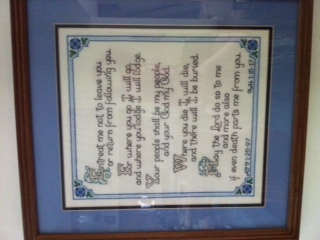 Entreat me not to leave you
or return from following you.
For where you go I will go
and where you lodge I will lodge.
Your people shall be my people,
and your God my God.
Where you die I will die,
and there will I be buried.
May the Lord do so to me
and more also
if even death parts me from you.
Ruth 1:16-17